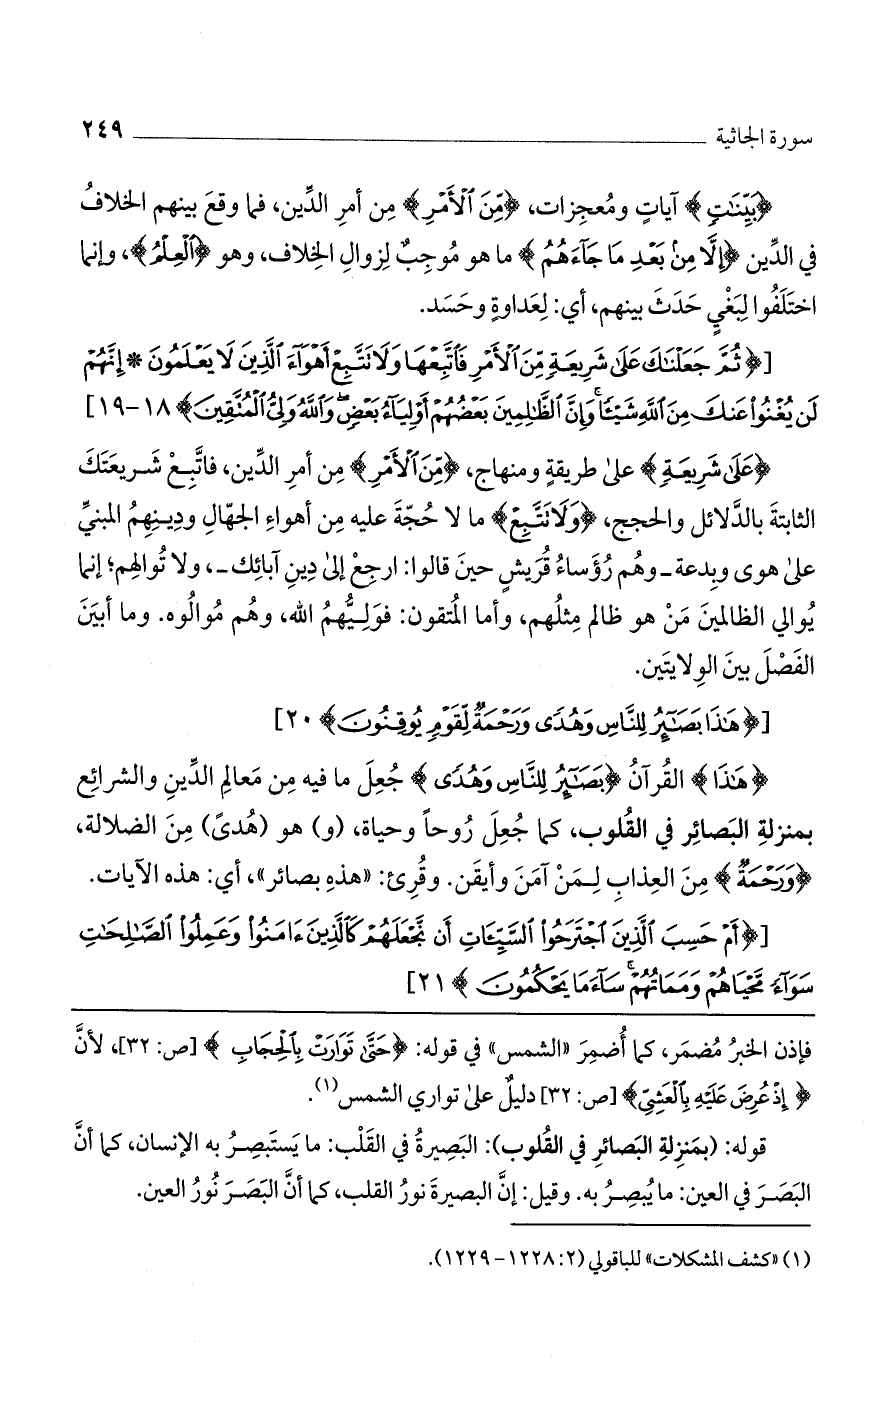 سورة الجاثية ٢٤٩
﴿بَيِّنَٰتٍ﴾ آياتٍ ومُعجِزات، ﴿مِّنَ ٱلْأَمْرِ﴾ مِن أمرِ الدِّين، فما وقعَ بينهم الخلافُ
في الدِّين ﴿إِلَّا مِنۢ بَعْدِ مَا جَآءَهُمُ﴾ ما هو مُوجِبٌ لِزوالِ الخِلاف، وهو ﴿ٱلْعِلْمُ﴾، وإنما
اختَلَفُوا لِبَغْيٍ حَدَثَ بينهم، أي: لِعَداوةٍ وحَسَد.
[﴿ثُمَّ جَعَلْنَٰكَ عَلَىٰ شَرِيعَةٍ مِّنَ ٱلْأَمْرِ فَٱتَّبِعْهَا وَلَا تَتَّبِعْ أَهْوَآءَ ٱلَّذِينَ لَا يَعْلَمُونَ * إِنَّهُمْ
لَن يُغْنُوا۟ عَنكَ مِنَ ٱللَّهِ شَيْـًٔا ۚ وَإِنَّ ٱلظَّٰلِمِينَ بَعْضُهُمْ أَوْلِيَآءُ بَعْضٍ ۖ وَٱللَّهُ وَلِىُّ ٱلْمُتَّقِينَ﴾ ١٨-١٩]
﴿عَلَىٰ شَرِيعَةٍ﴾ علىٰ طريقةٍ ومنهاج، ﴿مِّنَ ٱلْأَمْرِ﴾ مِن أمرِ الدِّين، فاتَّبِعْ شَريعَتَكَ
الثابتةَ بالدَّلائل والحجج، ﴿وَلَا تَتَّبِعْ﴾ ما لا حُجّةَ عليه مِن أهواءِ الجهّالِ ودِينِهِمُ المبنيِّ
علىٰ هوى وبِدعة ـ وهُم رُؤَساءُ قُرَيشٍ حينَ قالوا: ارجِعْ إلىٰ دِينِ آبائِك ـ، ولا تُوالِهِم؛ إنما
يُوالي الظالمينَ مَنْ هو ظالم مِثلُهم، وأما المُتقون: فوَلِيُّهمُ الله، وهُم مُوالُوه. وما أبيَنَ
الفَصْلَ بينَ الوِلايتَين.
[﴿هَٰذَا بَصَٰٓئِرُ لِلنَّاسِ وَهُدًى وَرَحْمَةٌ لِّقَوْمٍ يُوقِنُونَ﴾ ٢٠]
﴿هَٰذَا﴾ القُرآنُ ﴿بَصَٰٓئِرُ لِلنَّاسِ وَهُدًى﴾ جُعِلَ ما فيه مِن مَعالمِ الدِّينِ والشرائعِ
بمنزلةِ البَصائِر في القُلوب، كما جُعِلَ رُوحاً وحياة، (و) هو (هُدىً) مِنَ الضلالة،
﴿وَرَحْمَةٌ﴾ مِنَ العِذابِ لِـمَنْ آمَنَ وأيقَن. وقُرِئ: «هذهِ بصائر»، أي: هذه الآيات.
[﴿أَمْ حَسِبَ ٱلَّذِينَ ٱجْتَرَحُوا۟ ٱلسَّيِّـَٔاتِ أَن نَّجْعَلَهُمْ كَٱلَّذِينَ ءَامَنُوا۟ وَعَمِلُوا۟ ٱلصَّٰلِحَٰتِ
سَوَآءً مَّحْيَاهُمْ وَمَمَاتُهُمْ ۚ سَآءَ مَا يَحْكُمُونَ﴾ ٢١]
فإذن الخبرُ مُضمَر، كما أُضمِرَ «الشمس» في قوله: ﴿حَتَّىٰ تَوَارَتْ بِٱلْحِجَابِ﴾ [ص: ٣٢]، لأنَّ
﴿إِذْ عُرِضَ عَلَيْهِ بِٱلْعَشِىِّ﴾ [ص: ٣٢] دليلٌ علىٰ تواري الشمس(١).
قوله: (بمَنزِلةِ البَصائرِ في القُلوب): البَصِيرةُ في القَلْب: ما يَستَبصِرُ به الإنسان، كما أنَّ
البَصَرَ في العين: ما يُبصِرُ به. وقيل: إنَّ البصيرةَ نورُ القلب، كما أنَّ البَصَرَ نُورُ العين.
(١) «كشف المشكلات» للباقولي (٢: ١٢٢٨-١٢٢٩).